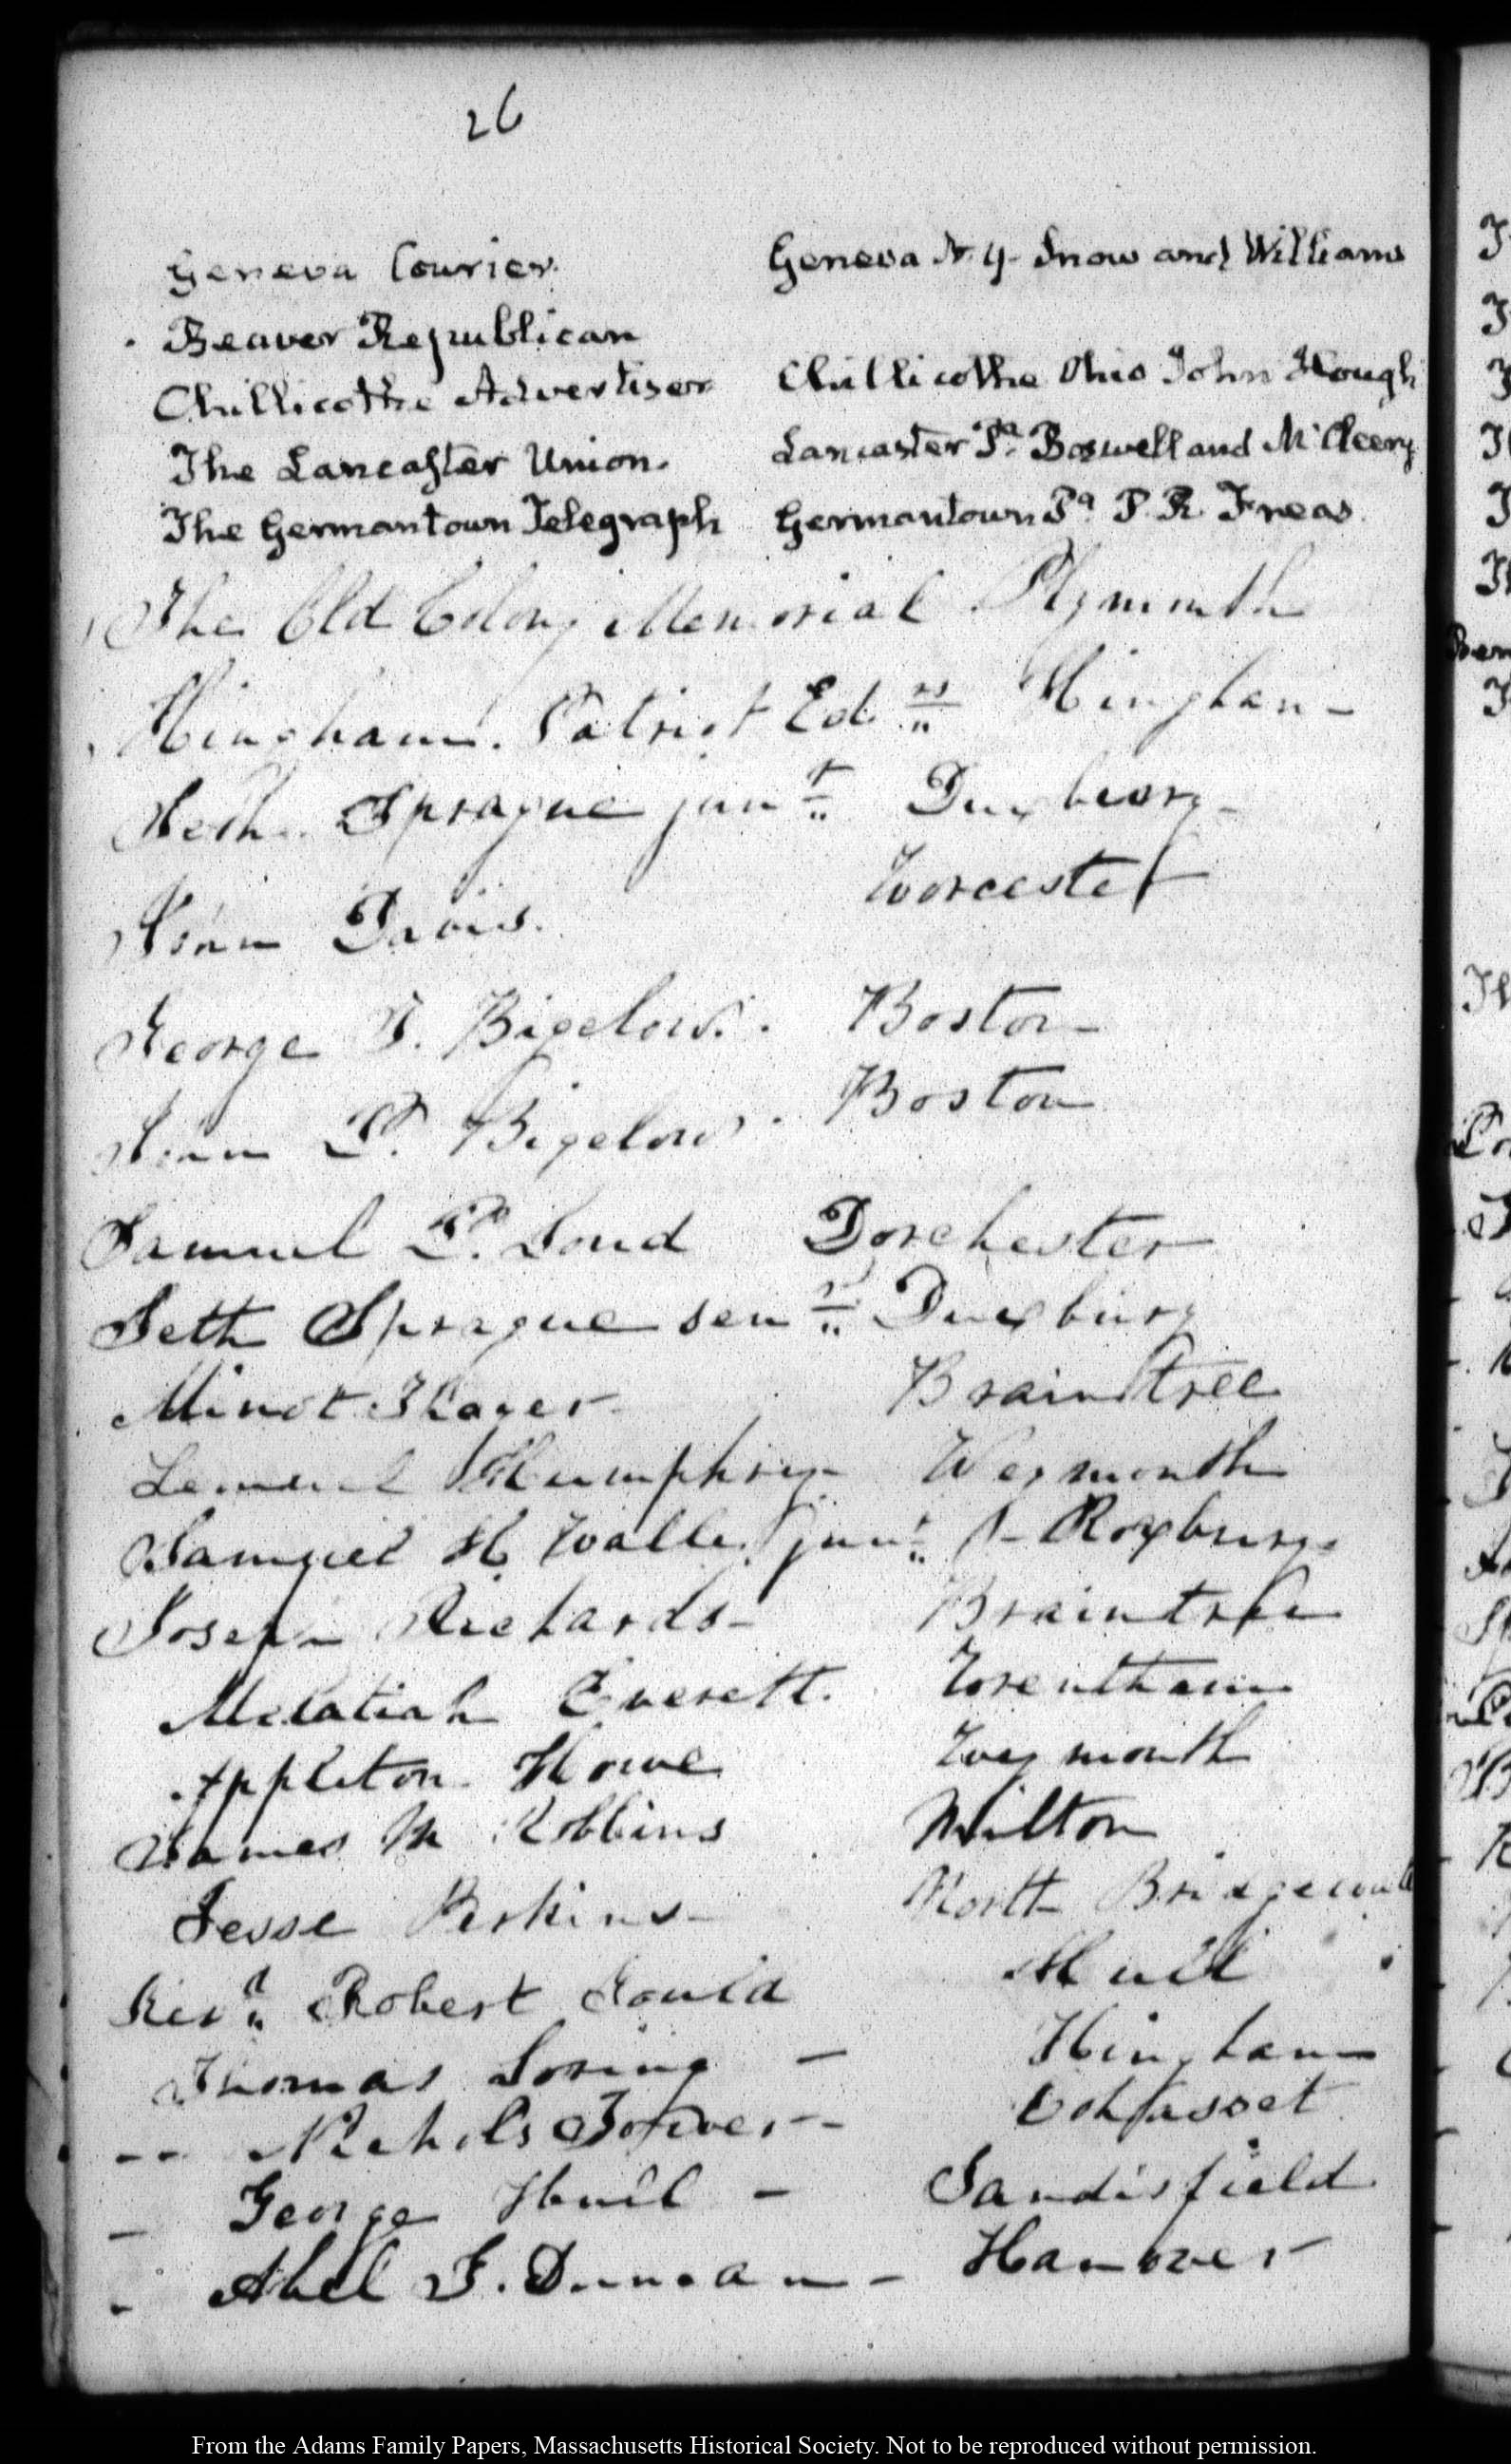 26
Geneva Courier. Geneva N. Y- Snow and Williams
Beaver Republican
Chillicothe Advertiser Chillicothe Ohio John Hough
The Lancaster Union. Lancaster Pa. Boswell and McCleery
The Germantown Telegraph Germantown Pa P. R. Freas.
The Old Colony Memorial Plymouth
Hingham. Patriot Edrs Hingham -
Seth Sprague junr Duxbury -
John Davis. Worcester
George T. Bigelow. Boston
John P. Bigelow. Boston
Samuel P. Loud Dorchester
Seth Sprague senr Duxbury
Minot Thayer Braintree
Lemuel Humphrey Weymouth
Samuel H Walley junr Roxbury
Joseph Richards - Braintree
Melatiah Everett. Wrentham
Appleton Howe Weymouth
James M Robbins Milton
Jesse Perkins - North
Revd Robert Gould Hull
Thomas Loring - Hingham
-- Nichols Tower -- Cohasset
- George Hull - Sandisfield
- Abel G. Duncan - Hanover
From the Adams Family Papers, Massachusetts Historical Society. Not to be reproduced without permission.